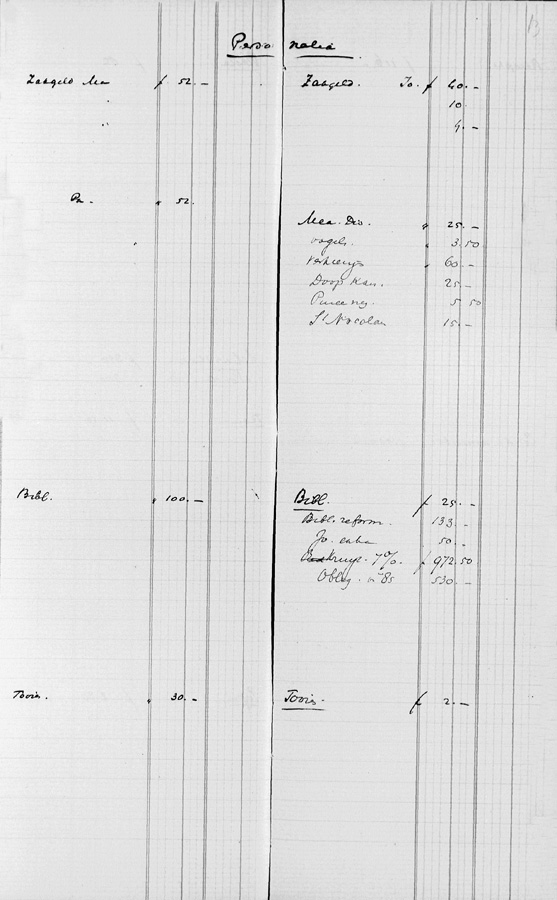 13
Personalia
Zakgeld Ma f 52.-
Pa. " 52.
Bibl. " 100.-
Tooi. " 30.-
Zakgeld. Jo. f 40.-
10.
4.-
Mea. Div. " 25.-
vogels. " 3.50
" 60.-
Doop 25.-
5.50
St Nicolaas 15.-
Bibl. f 25.-
Bibl. reform. 133.-
Jo. extra 50.-
7%. f 972.50
Oblig. 85 530.-
Tooi. f 2.-